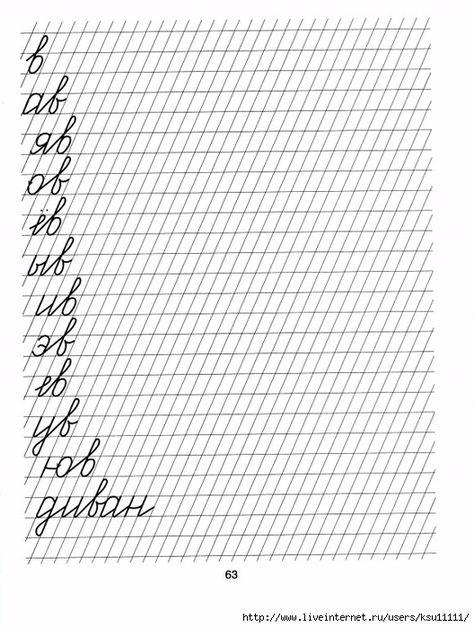 в
ав
яв
ов
ёв
ыв
ив
эв
ев
ув
юв
диван
63
http://www.liveinternet.ru/users/ksu11111/